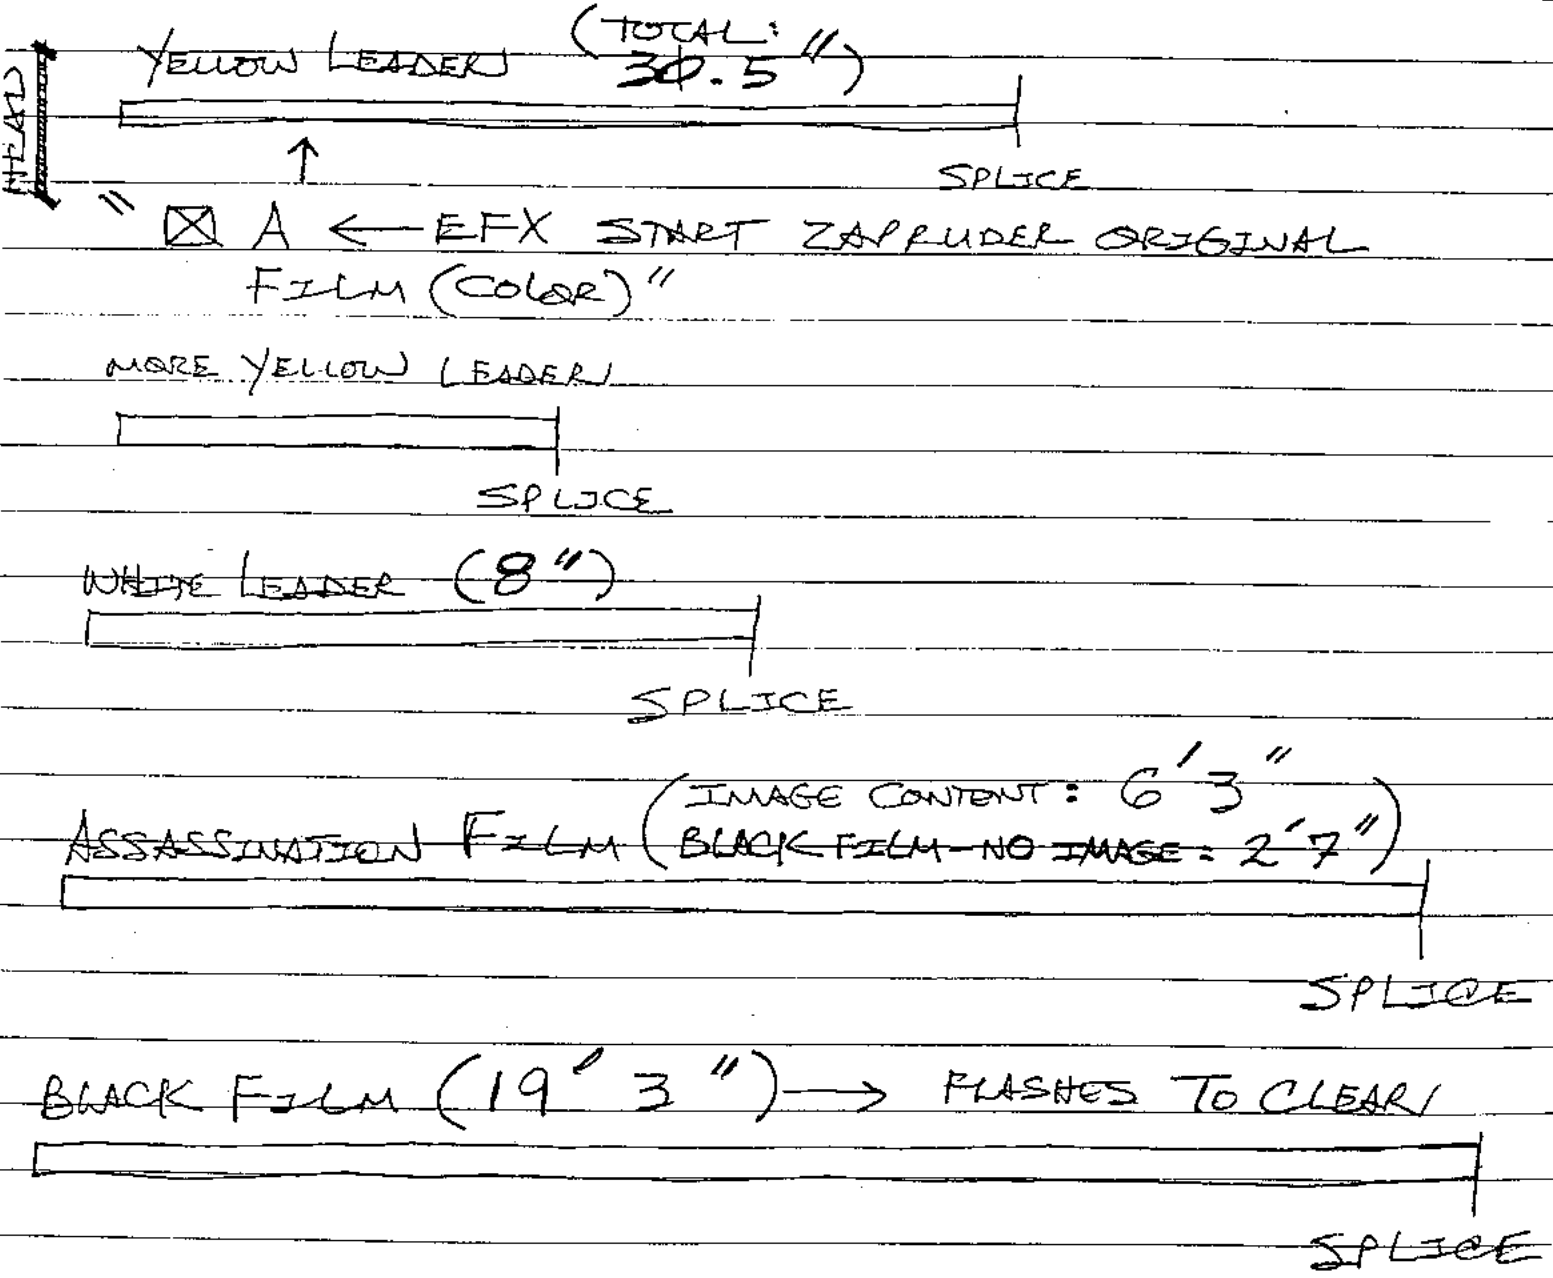 HEAD
YELLOW LEADER (TOTAL: 30.5")
SPLICE
" ☒ A ← EFX START ZAPRUDER ORIGINAL
FILM (COLOR)"
MORE YELLOW LEADER
SPLICE
WHITE LEADER (8")
SPLICE
ASSASSINATION FILM (IMAGE CONTENT: 6'3"
BLACK FILM-NO IMAGE: 2'7")
SPLICE
BLACK FILM (19' 3") → FLASHES TO CLEAR
SPLICE